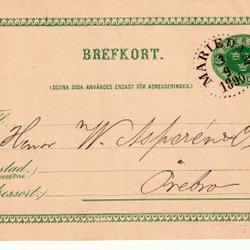 BREFKORT.
(DENNA SIDA ANVÄNDES ENDAST FÖR ADRESSERINGEN.)
MARIE
1890
Herrar W. Asperén &
stad.)
Örebro
ressort:)